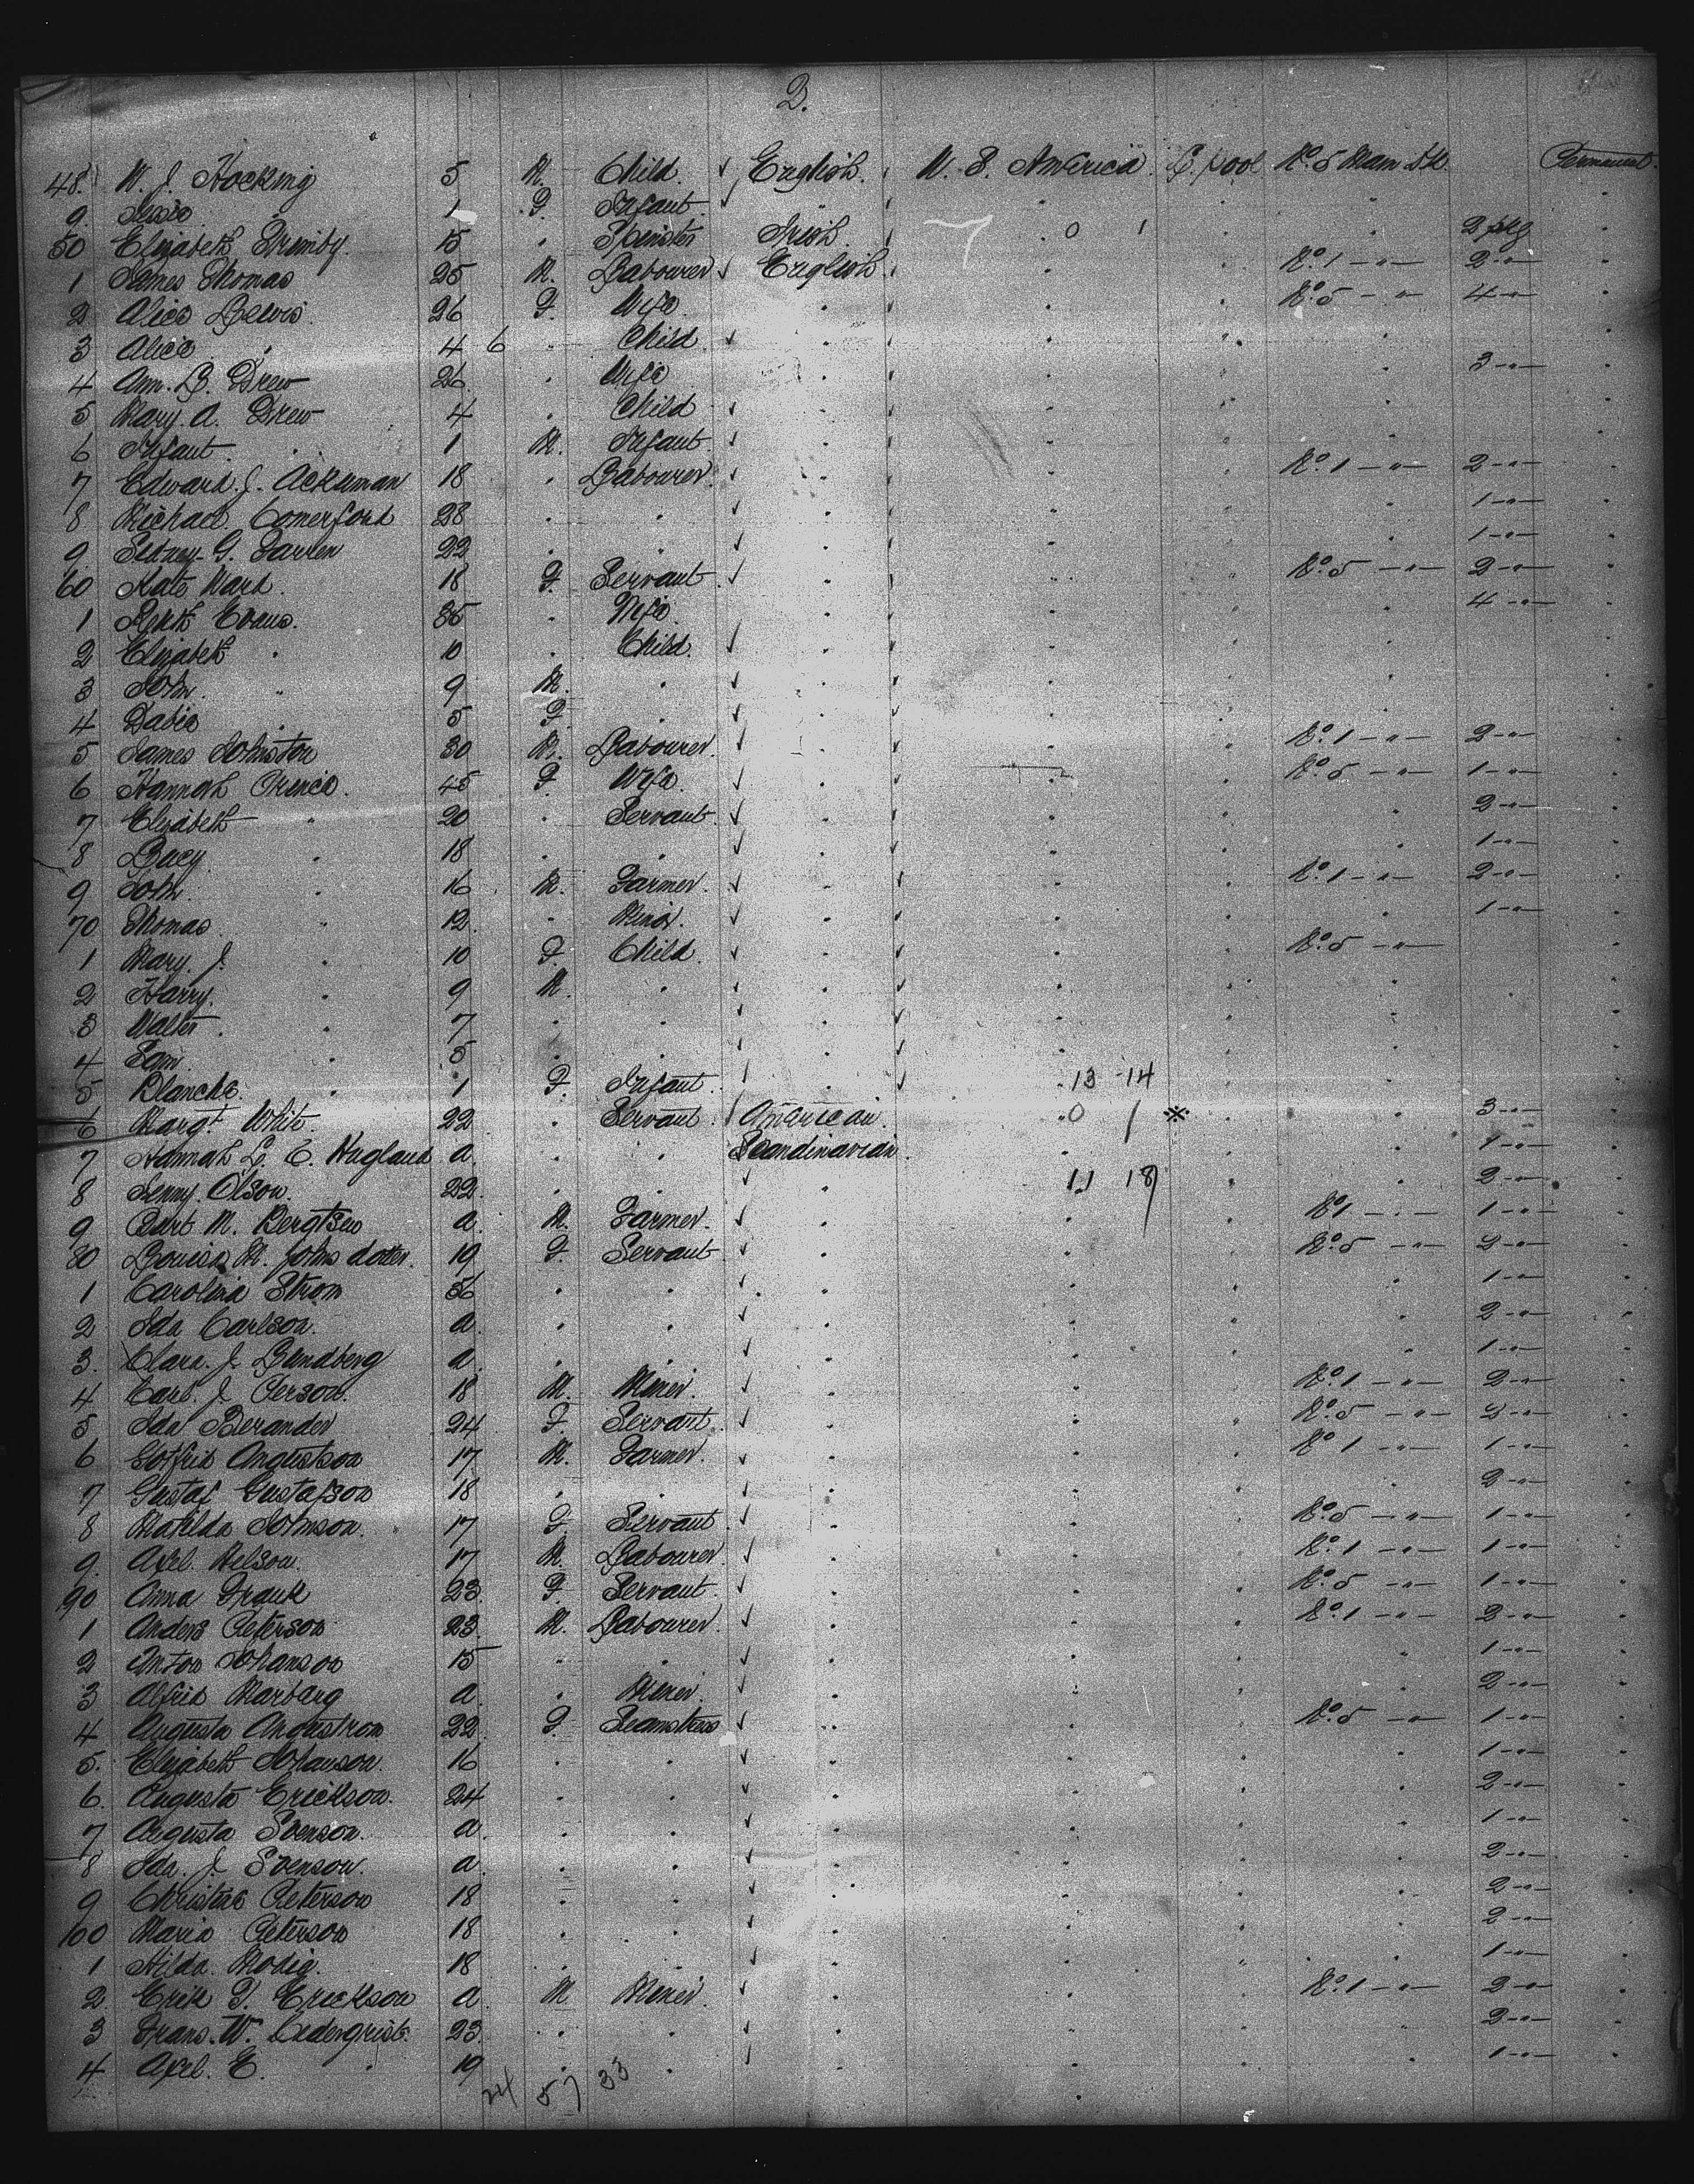 2.
48. W. J. Hocking 5 M. Child. ✓ English. U. S. America. L. pool No. 5 Main Dk. Permanent.
9. Jessie 1 F. Infant. ✓ "
50 Elizabeth Grimby. 15 " Spinster Irish. 7 0 1 " 2 pkg
1 James Thomas 25 M. Labourer ✓ English. No. 1 -"- 2 -"-
2 Alice Lewis. 26 F. Wife. No. 5 -"- 4 -"-
3 Alice " 4 6 " Child. ✓ "
4 Ann. B. Drew 26. " Wife " 3 -"-
5 Mary. A. Drew 4 " Child ✓ "
6 Infant. " 1 M. Infant. ✓ "
7 Edward. J. Ackerman 18 " Labourer. " No. 1 -"- 2 -"-
8 Michael. Comerford 28 " " " 1 -"-
9. Sidney. G. Farren 22 " " ✓ " 1 -"-
60 Kate Ward. 18 F. Servant ✓ " No. 5 -"- 2 -"-
1 Evans. 35 " Wife. " 4 -"-
2 Elizabeth " 10 " Child. ✓ "
3 John. " 9 M. " ✓ "
4 " 5 F. " ✓ "
5 James Johnston 30 M. Labourer. ✓ " No. 1 -"- 2 -"-
6 Hannah 45 F. Wife. ✓ " No. 5 -"- 1 -"-
7 Elizabeth " 20 " Servant. ✓ " 2 -"-
8 Lucy " 18 " " ✓ " 1 -"-
9 John. " 16 M. Farmer. ✓ " No. 1 -"- 2 -"-
70 Thomas " 12 " Minor. ✓ " 1 -"-
1 Mary. J. " 10 F. Child. ✓ " No. 5 -"-
2 Harry. " 9 M. " ✓ "
3 Walter. " 7 " " ✓ "
4 Sam. " 5 " " ✓ "
5 Blanche. " 1 F. Infant. ✓ " 13 14
6 Margt. White. 22 " Servant. American. 0 1 ※ " 3 -"-
7 Hannah L. C. Hagland a. " " Scandinavian. " 1 -"-
8 Jenny. Olson. 22. " " ✓ " 11 18 " 2 -"-
9 M. Bergtsen a. M. Farmer. ✓ " No 1 -"- 1 -"-
80 Louisa M. Johns dotter. 19 F. Servant ✓ " No. 5 -"- 2 -"-
1 Carolina Strom 36 " " ✓ " 1 -"-
2 Ida Carlson. a. " " ✓ " 2 -"-
3. Clara. J. Lundberg a. " " ✓ " 1 -"-
4 Carl. J. Person. 18 M. Miner. ✓ " No. 1 -"- 2 -"-
5 Ida Berander 24 F. Servant. ✓ " No. 5 -"- 2 -"-
6 Gotfrid Angustson 17 M. Farmer. ✓ " No 1 -"- 1 -"-
7 Gustaf Gustafson 18 " " ✓ " 2 -"-
8 Matilda Johnson. 17 F. Servant. ✓ " No. 5 -"- 1 -"-
9. Axel. Nelson. 17 M. Labourer. ✓ " No. 1 -"- 1 -"-
90 Anna Frank 23. F. Servant. ✓ " No. 5 -"- 1 -"-
1 Anders Peterson 23. M. Labourer. ✓ " No. 1 -"- 2 -"-
2 Anton Johanson 15 " " ✓ " 1 -"-
3 Alfrid Marbarg a. " Miner. ✓ " 2 -"-
4 Augusta Angustrom 22. F. Seamstress ✓ " No. 5 -"- 1 -"-
5. Elizabeth Johanson. 16 " " ✓ " 1 -"-
6. Augusta Erickson. 24 " " ✓ " 2 -"-
7 Augusta Svenson. a. " " ✓ " 1 -"-
8 Ida. J. Svenson. a. " " ✓ " 2 -"-
9 Christine Peterson 18 " " ✓ " 2 -"-
100 Maria Peterson 18 " " ✓ " 2 -"-
1 Hilda. Modig. 18 " " ✓ " 1 -"-
2. Erik Erickson a. M Miner. ✓ " No. 1 -"- 2 -"-
3 Frans. W. Cedergrist. 23. " " ✓ " 2 -"-
4 Axel. E. " 19 " " ✓ " 1 -"-
24 57 33